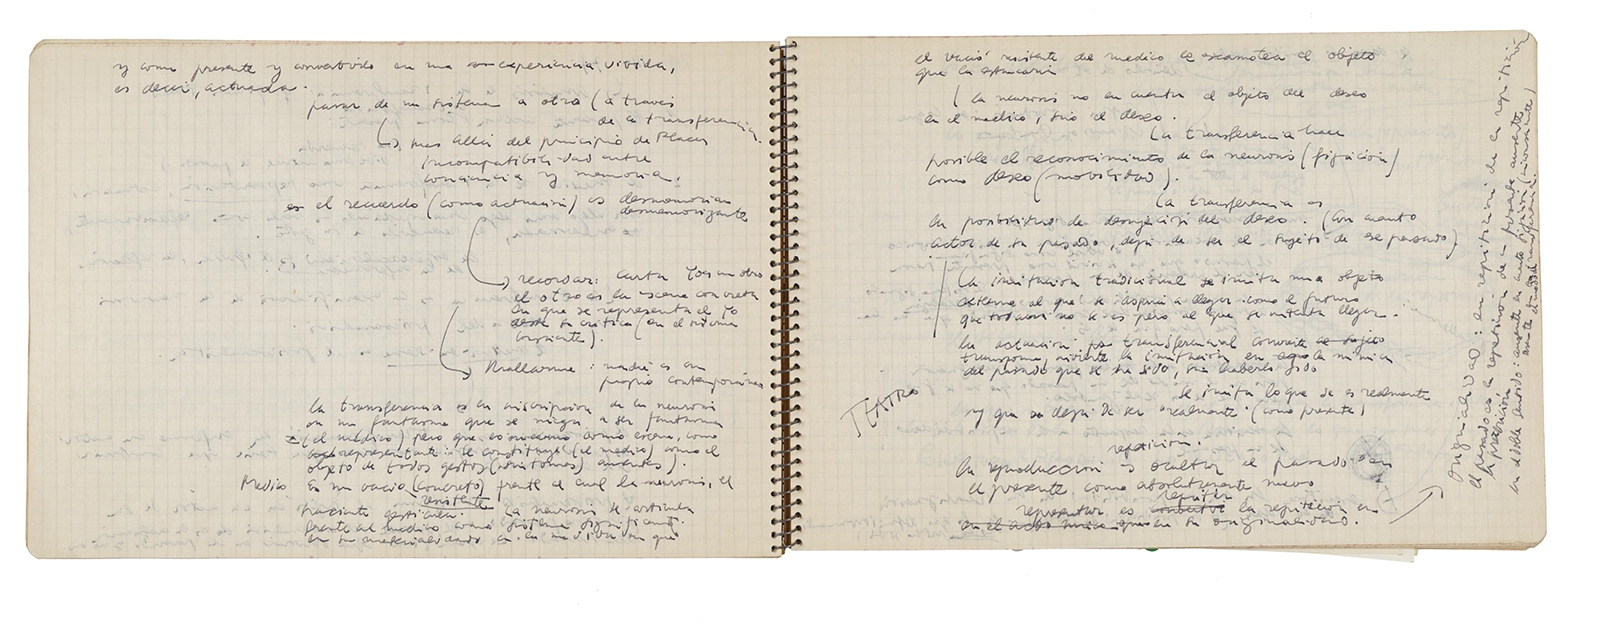 y como presente y convertido en una experiencia vivida,
es decir, actuada.
pasar de un sistema a otro (a través
de la transferencia.
mas allá del principio de Placer
incompatibilidad entre
conciencia y memoria.
es el recuerdo (como actuación) es
desmemorizante
recordar: carta Yo es un otro
el otro es la escena concreta
en que se representa el Yo
su crítica (en el sistema
Mallarmé: nadie es su
propio contemporáneo
la transferencia es la inscripción de la neurosis
en un fantasma que se niega a ser fantasma
(el médico) pero que es como escena, como
representante: se constituye (el medico) como el
objeto de todos gestos (síntomas) ausentes).
Medio Es un vacío (concreto) frente al cual la neurosis, el
resistente
paciente gesticula. La neurosis se articula
frente al medico como sistema significante.
en su materialidad en la medida en que
el vacío resistente del medico le escamotea el objeto
que la saciaría
(la neurosis no encuentra el objeto del deseo
en el medico, sino el deseo.
La transferencia hace
posible el reconocimiento de la neurosis (fijación)
como deseo (movilidad).
La transferencia es
la posibilidad de del deseo. (En cuanto
actor de su pasado, deja de ser el sujeto de ese pasado)
La imitación tradicional se imita una objeto
externo al que se aspira a llegar como el futuro
que todavía no se es pero al que se intenta llegar.
la actuación transferencial convierte
transforma, invierte la imitación en la mímica
del pasado que se ha sido, sin haberlo sido
TEATRO
se imita lo que se es realmente
y que se deja de ser realmente (como presente)
repetición.
la reproducción es ocultar el pasado en
el presente como absolutamente nuevo
repetir
representar es la repetición en
en el acto único que en su originalidad.
Originalidad: en repetición de la repetición
el pasado es la repetición de un presente ausente
la privación
en el doble sentido: ausente en cuanto fijación (inconsciente)